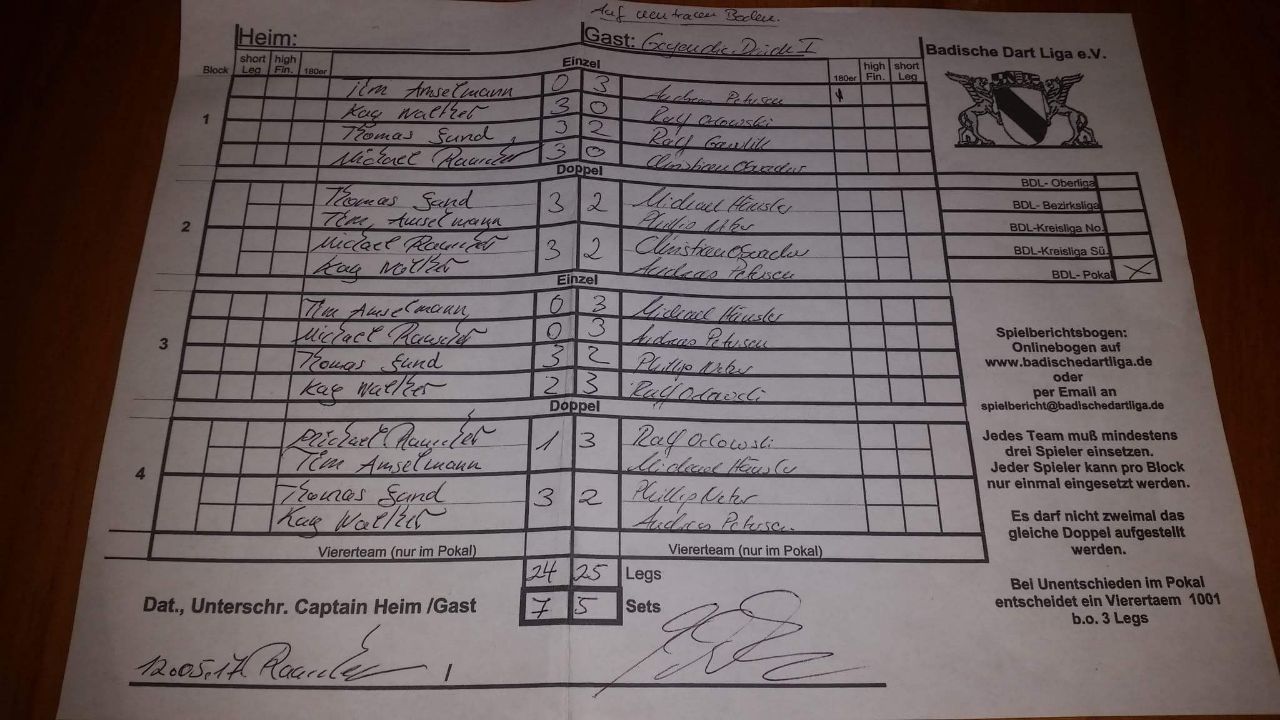 Auf neutralem Boden.
Heim: Gast: Gegen die Drück I
Badische Dart Liga e.V.
Block short Leg high Fin. 180er Einzel 180er high Fin. short Leg
1
Tim Amselmann 0 3 Andreas Petersen 1
Kay Walther 3 0 Ralf Orlowski
Thomas Sand 3 2 Ralf
Michael 3 0 Christian
Doppel
2
Thomas Sand 3 2 Michael Häusler
Tim Amselmann Phillip
Michael 3 2 Christian
Kay Walther Andreas Petersen
Einzel
3
Tim Amselmann 0 3 Michael Häusler
Michael 0 3 Andreas Petersen
Thomas Sand 3 2 Phillip
Kay Walther 2 3 Ralf Orlowski
Doppel
4
Michael 1 3 Ralf Orlowski
Tim Amselmann Michael Häusler
Thomas Sand 3 2 Phillip
Kay Walther Andreas Petersen.
Viererteam (nur im Pokal) Viererteam (nur im Pokal)
24 25 Legs
7 5 Sets
Dat., Unterschr. Captain Heim /Gast
12.05.17
BDL- Oberliga
BDL- Bezirksliga
BDL-Kreisliga No.
BDL-Kreisliga Sü.
BDL- Pokal X
Spielberichtsbogen:
Onlinebogen auf
www.badischedartliga.de
oder
per Email an
spielbericht@badischedartliga.de
Jedes Team muß mindestens
drei Spieler einsetzen.
Jeder Spieler kann pro Block
nur einmal eingesetzt werden.
Es darf nicht zweimal das
gleiche Doppel aufgestellt
werden.
Bei Unentschieden im Pokal
entscheidet ein Vierertaem 1001
b.o. 3 Legs